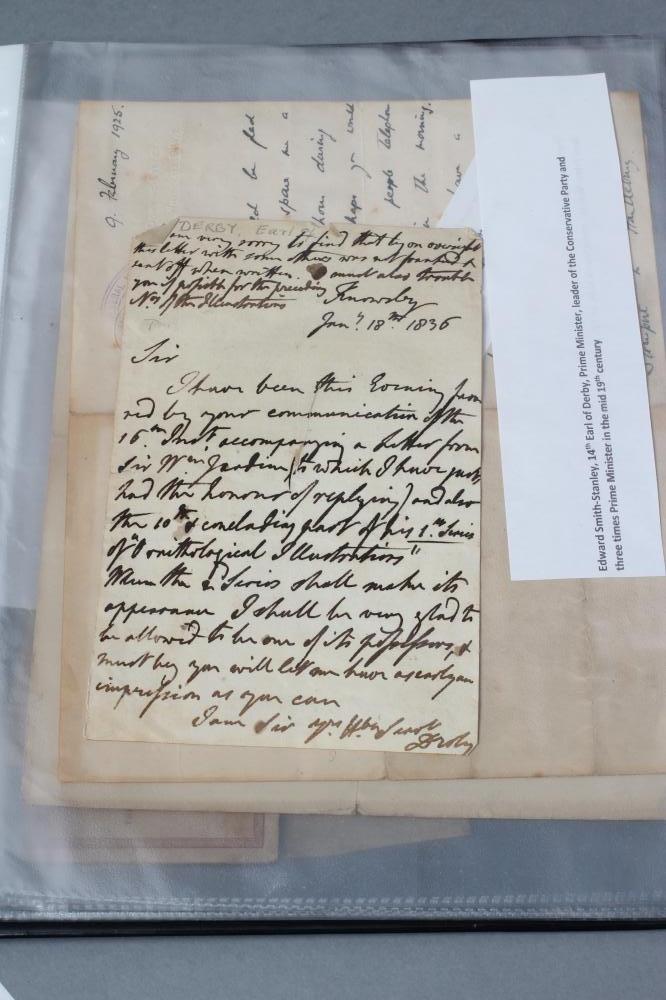 9. February 1925.
be glad
spare me a
during
people telephone
the morning.
DERBY, Earl of
am very sorry to find that by an oversight
this letter with some others was not franked &
sent off when written. I must also trouble
you if possible for the preceding
Nos. of the Illustrations
Knowsley
Jany. 18th 1836
Sir
I have been this Evening favou
red by your communication of the
16th. Inst accompanying a Letter from
Sir Wm. Jardine (to which I have just
had the honour of replying) and also
the 10th & concluding part of his 1st Series
of "Ornithological Illustrations"
When the 2d. Series shall make its
appearance I shall be very glad to
be allowed to be one of its possessors, &
must beg you will let me have as early an
impression as you can
I am Sir yr. Hble Servt
Derby
Edward Smith-Stanley, 14th Earl of Derby, Prime Minister, leader of the Conservative Party and
three times Prime Minister in the mid 19th century